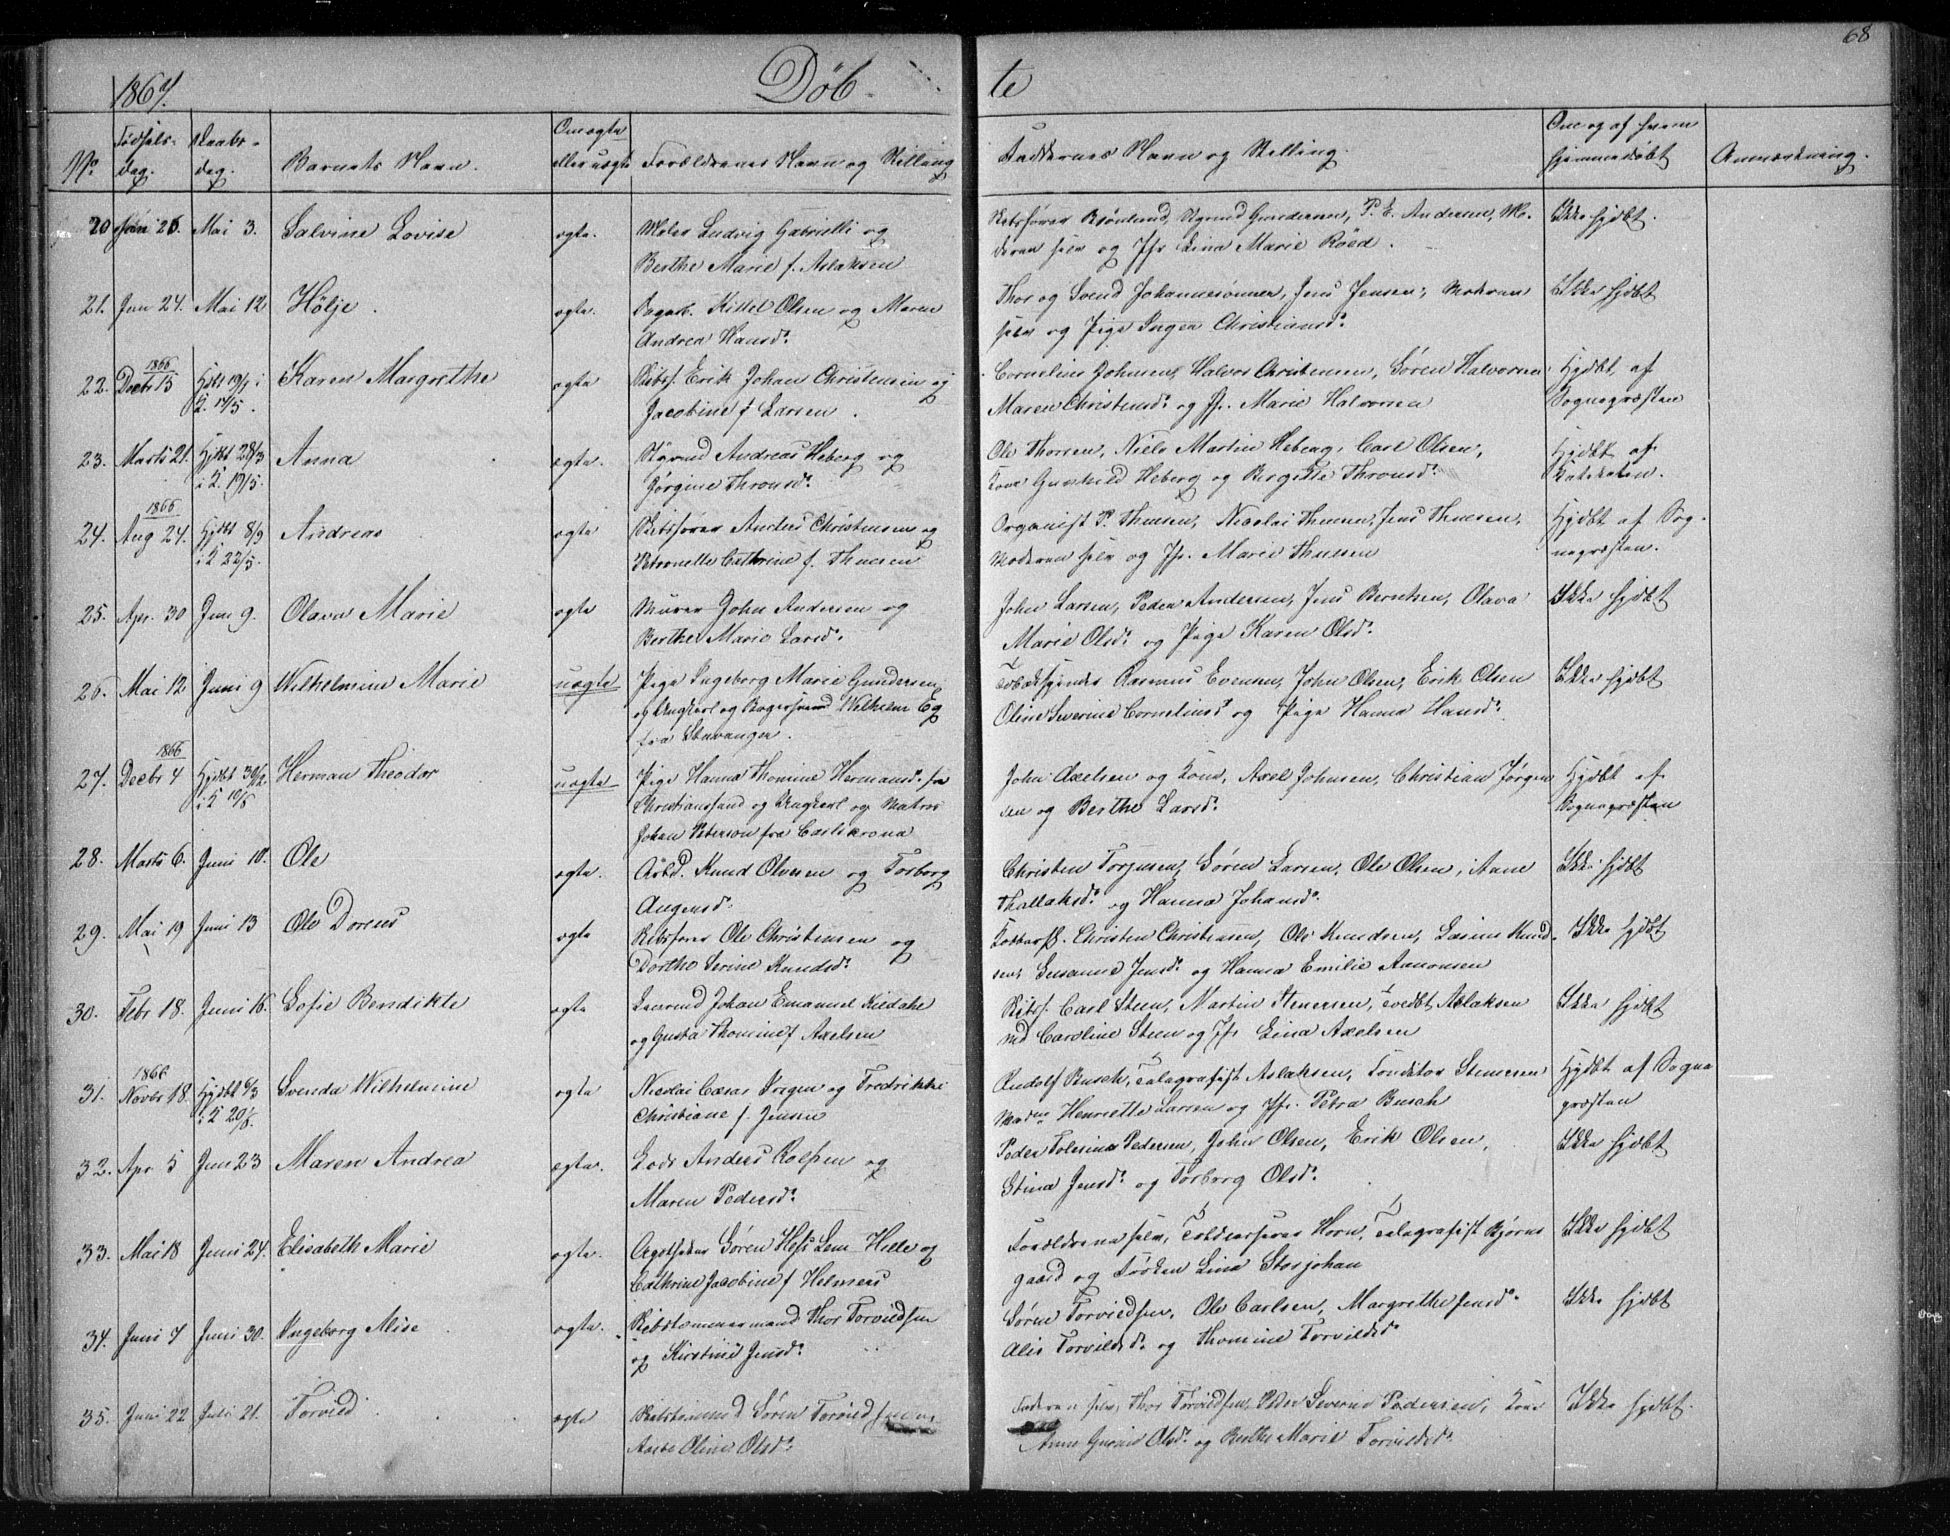 68
1867.
Døb
te
No
Fødsels-
dag.
Daabs-
dag.
Barnets Navn.
Om ægte
eller uægte
Forældrenes Navn og Stilling
Faddernes Navn og Stilling.
Om og af hvem
hjemmedøbt
Anmærkning.
20 Jan 26. Mai 3. Salvine Lovise ægte. Maler Ludvig Gabrielli og
Berthe Marie f. Aslaksen
Gundersen, P. E. Andersen, Mo-
deren selv og Jfr Lina Marie Röed.
Ikke hjdbt.
21. Jan 24. Mai 12 Hölje. ægte. Kittel Olsen og Maren
Andrea Hansd.
Thor og Svend Johannesønner, Jens Jensen, Moderen
selv og Pige Inger Christiansd.
Ikke hjdbt
22. 1866 Decbr 15 Hjdbt 19/1 i
K. 19/5.
Karen Margrethe ægte Skibsf. Erik Johan Christensen og
Jacobine f Larsen.
Cornelius Johnsen, Halvor Christensen, Søren Halvorsen
Maren Christensd. og Jfr. Marie Halvorsen
Hjdbt af
Sognepræsten
23. Marts 21. Hjdbt 28/3
i K. 19/5.
Anna ægte. Styrmd Andreas Heberg og
Jörgine Thronsd.
Ole Thorsen, Niels Martin Heberg, Carl Olsen,
Kone Gunhild Heberg og Bergitte Thronsd.
Hjdbt af
Kateketen.
24. 1866 Aug 24. Hjdbt 8/9
i K 22/5.
Andreas ægte Skibsfører Anders Christensen og
Petronelle Cathrine f. Thuesen
Organist P. Thuesen, Nicolai Thuesen, Jens Thuesen,
Moderen selv og Jfr. Marie Thuesen
Hjdbt af Sog-
nepræsten.
25. Apr. 30 Juni 9. Olava Marie ægte Murer John Andersen og
Berthe Marie Larsd.
John Larsen, Peder Andersen, Jens Berntsen, Olava
Marie Olsd. og Pige Karen Olsd.
Ikke hjdbt
26. Mai 12 Juni 9 Wilhelmine Marie uægte Pige Ingeborg Marie Gundersen
og Ungkarl og Bagersvend Wilhelm Eg
fra Stavanger.
Rasmus Evensen, John Olsen, Erik Olsen
Oline Severine Corneliusd og Pige Hanna Hansd.
Ikke hjdbt
27. 1866 Decbr 4 Hjdbt 30/12
i K 10/6
Herman Theodor uægte Pige Hanna Thomine Hermansd. fra
Christianssand og Ungkarl og Matros
Johan Peterson fra Carlskrona
John Axelsen og Kone, Axel Johnsen, Christian Jørgen
sen og Berthe Larsd.
Hjdbt af
Sognepræsten
28. Marts 6. Juni 10. Ole ægte. Arbd. Knud Olvesen og Torborg
Augensd.
Christen Torjusen, Søren Larsen, Ole Olsen, Anne
Thallaksd. og Hanna Johansd.
Ikke hjdbt
29. Mai 19 Juni 13 Ole Dorenus ægte Skibsfører Ole Christensen og
Dorthe Serine Knudsd.
Christen Christensen, Ole Knudsen, Lasine Knud
sen, Susanne Jensd. og Hanna Emilie Aanonsen
Ikke hjdbt
30. Febr 18. Juni 16. Sofie Bendikte ægte Johan Emanuel Kiedahl
og Gusta Thomine f Axelsen
Skibsf. Carl Steen, Martin Stenersen, Aslaksen
Md Caroline Steen og Jfr Lina Axelsen
Ikke hjdbt
31. 1866 Novbr 18. Hjdbt 6/3
i K 20/6.
Svenda Wilhelmine ægte Nicolai Cæsar Irgen og Fredrikke
Christiane f. Jensen
Rudolf Busch, Telegrafist Aslaksen, Konditor Stenersen
Madm Henriette Larsen og Jfr. Petra Busch
Hjdbt af Sogne
præsten
32. Apr 5 Juni 23 Maren Andrea ægte. Lods Anders Rolfsen og
Maren Pedersd.
Peder Tolesius Pedersen, John Olsen, Erik Olsen,
Stina Jensd. og Torborg Olsd.
Ikke hjdbt
33. Mai 18 Juni 24. Elisabeth Marie ægte. Apotheker Søren Hiele og
Cathrine Jacobine f Helmers
Forældrene selv, Horn, Telegrafist Bjørns
gaard og Frøken Lina Storjohan
Ikke hjdbt
34. Juni 7 Juni 30. Ingeborg Alise ægte. Skibstømmermand Thor Torvildsen
og Kirstine Jensd.
Søren Torvildsen, Ole Carlsen, Margrethe Jensd.
Alis Torvildsd. og Thomine Torvildsd.
Ikke hjdbt
35. Juni 22 Juli 21. Torvild ægte Søren Torvildsen
Aaste Oline Olsd.
Faderen selv, Thor Torvildsen, Peder Severin Pedersen, Kone
Anne Gurine Olsd. og Berthe Marie Torvildsd.
Ikke hjdbt.